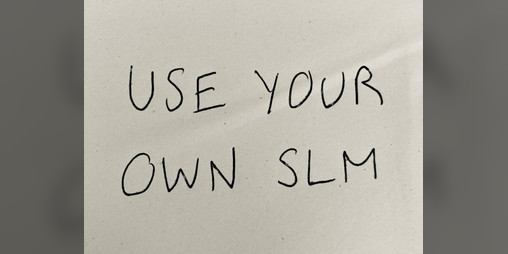 USE YOUR
OWN SLM